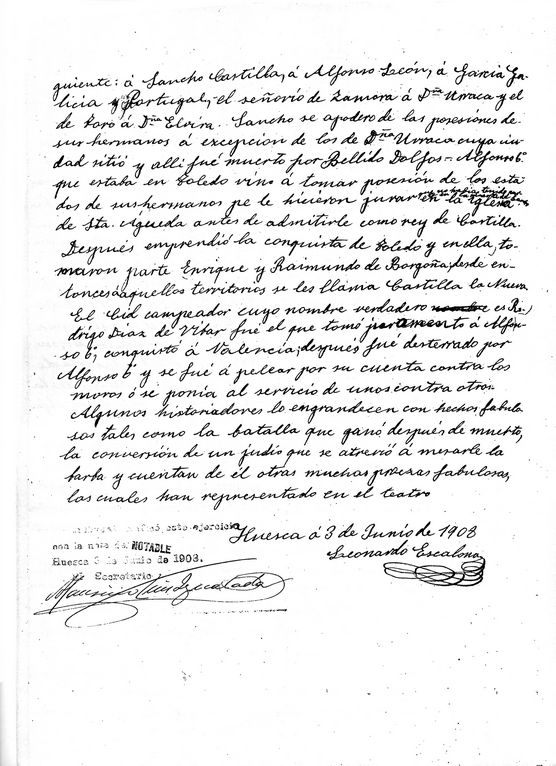 guiente: á Sancho Castilla, á Alfonso León, á García Ga-
licia y Portugal, el señorío de Zamora á Dña Urraca y el
de Toro á Dña Elvira. Sancho se apodero de las posesiones de
sus hermanos á excepción de los de Dña Urraca cuya ciu-
dad sitió y alli fué muerto por Bellido Dolfos = Alfonso 6º
que estaba en Toledo vino á tomar posesión de los esta-
dos de sus hermanos pe le hicieron jurar en la iglesia
de Sta. Agueda antes de admitirle como rey de Castilla.
Después emprendió la conquista de Toledo y en ella, to-
maron parte Enrique y Raimundo de Borgoña, desde en-
tonces á aquellos territorios se les llama Castilla la Nueva
El Cid campeador cuyo nombre verdadero es Ro-
drigo Diaz de Vibar fué el que tomó juramento á Alfon-
so 6º, conquistó á Valencia, después fué desterrado por
Alfonso 6º y se fué á pelear por su cuenta contra los
moros ó se ponía al servicio de unos contra otros
Algunos historiadores lo engrandecen con hechos fabulo
sos tales como la batalla que ganó después de muerto,
la conversión de un judío que se atrevió á mesarle la
barba y cuentan de él otras muchas proezas fabulosas,
las cuales han representado en el teatro
Huesca á 3 de Junio de 1908
Leonardo Escalona
este ejercicio
con la nota de NOTABLE
Huesca 3 de Junio de 1908.
El Secretario